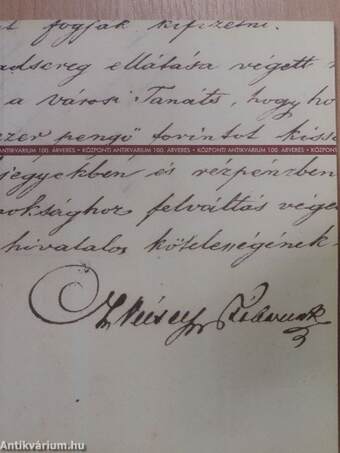 fogják kifizetni.
ellátása végett
a városi Tanáts, hogy ho
ezer pengő forintot kisse
ANTIKVÁRIUM 100. ÁRVERÉS • KÖZPONTI ANTIKVÁRIUM 100. ÁRVERÉS • KÖZPONTI ANTIKVÁRIUM 100. ÁRVERÉS • KÖZPONTI
jegyekben és rézpénzben
oksághoz felváltás vége
hivatalos kötelességének
Antikvárium.hu